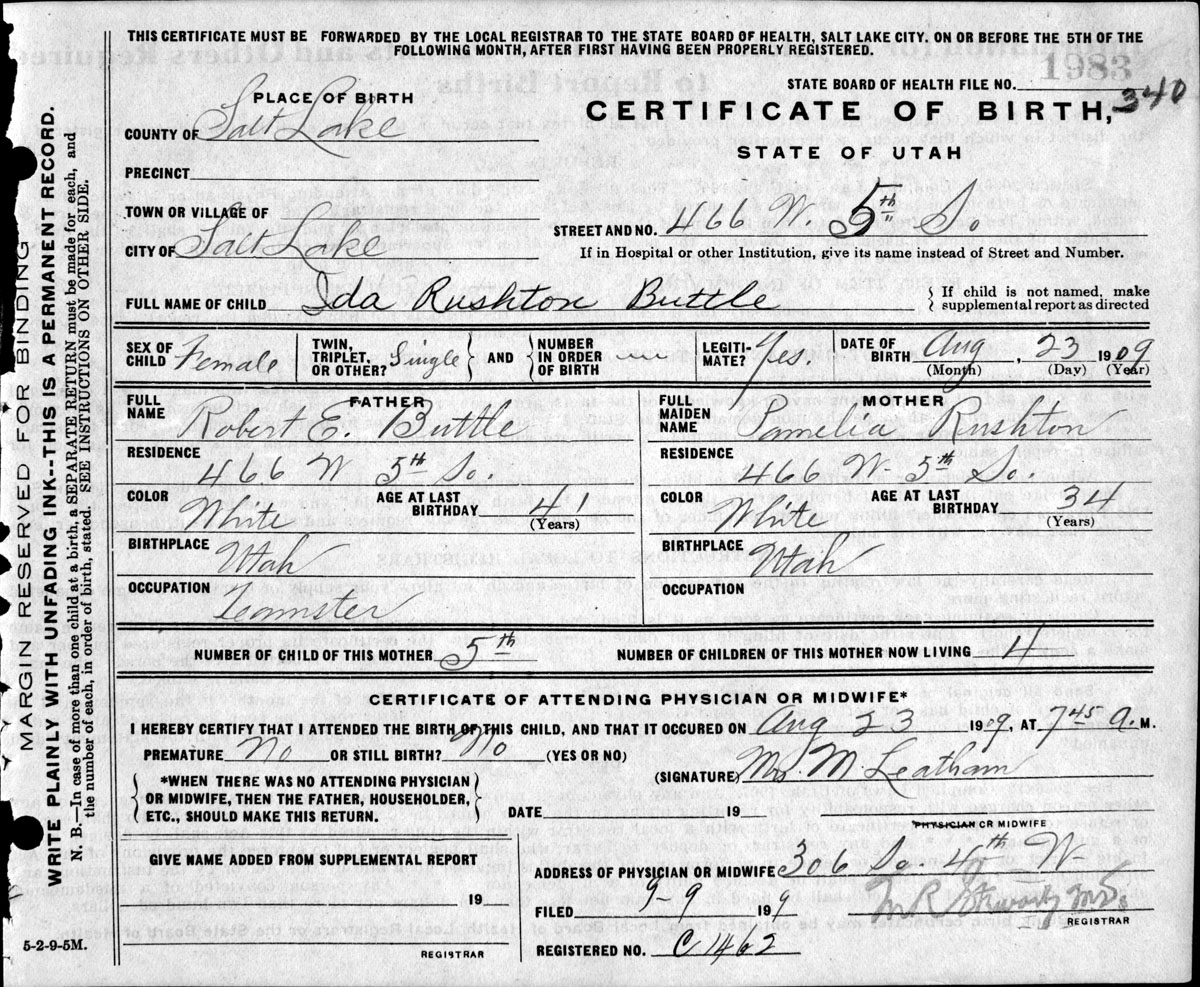 THIS CERTIFICATE MUST BE FORWARDED BY THE LOCAL REGISTRAR TO THE STATE BOARD OF HEALTH, SALT LAKE CITY, ON OR BEFORE THE 5TH OF THE
FOLLOWING MONTH, AFTER FIRST HAVING BEEN PROPERLY REGISTERED.
1983
STATE BOARD OF HEALTH FILE NO. 340
PLACE OF BIRTH
CERTIFICATE OF BIRTH,
COUNTY OF Salt Lake
STATE OF UTAH
PRECINCT
TOWN OR VILLAGE OF
STREET AND NO. 466 W. 5th So
CITY OF Salt Lake
If in Hospital or other Institution, give its name instead of Street and Number.
FULL NAME OF CHILD Ida Rushton Buttle
{ If child is not named, make
supplemental report as directed
SEX OF CHILD Female
TWIN, TRIPLET, OR OTHER? Single } AND { NUMBER IN ORDER OF BIRTH
LEGITIMATE? Yes.
DATE OF BIRTH Aug, 23 1909
(Month) (Day) (Year)
FATHER
FULL NAME Robert E. Buttle
RESIDENCE 466 W 5th So.
COLOR White AGE AT LAST BIRTHDAY 41 (Years)
BIRTHPLACE Utah
OCCUPATION Teamster
MOTHER
FULL MAIDEN NAME Pamelia Rushton
RESIDENCE 466 W. 5th So.
COLOR White AGE AT LAST BIRTHDAY 34 (Years)
BIRTHPLACE Utah
OCCUPATION
NUMBER OF CHILD OF THIS MOTHER 5th NUMBER OF CHILDREN OF THIS MOTHER NOW LIVING 4
CERTIFICATE OF ATTENDING PHYSICIAN OR MIDWIFE*
I HEREBY CERTIFY THAT I ATTENDED THE BIRTH OF THIS CHILD, AND THAT IT OCCURED ON Aug 23 1909, AT 7 45 A. M.
PREMATURE No OR STILL BIRTH? No (YES OR NO)
{ *WHEN THERE WAS NO ATTENDING PHYSICIAN
OR MIDWIFE, THEN THE FATHER, HOUSEHOLDER,
ETC., SHOULD MAKE THIS RETURN. }
(SIGNATURE) Mrs. M. Leatham
DATE 19
PHYSICIAN OR MIDWIFE
GIVE NAME ADDED FROM SUPPLEMENTAL REPORT
19
REGISTRAR
ADDRESS OF PHYSICIAN OR MIDWIFE 306 So. 4th W.
FILED 9-9 199
REGISTRAR
REGISTERED NO. C 1462
5-2-9-5M.
MARGIN RESERVED FOR BINDING
WRITE PLAINLY WITH UNFADING INK--THIS IS A PERMANENT RECORD.
N. B.—In case of more than one child at a birth, a SEPARATE RETURN must be made for each, and
the number of each, in order of birth, stated. SEE INSTRUCTIONS ON OTHER SIDE.